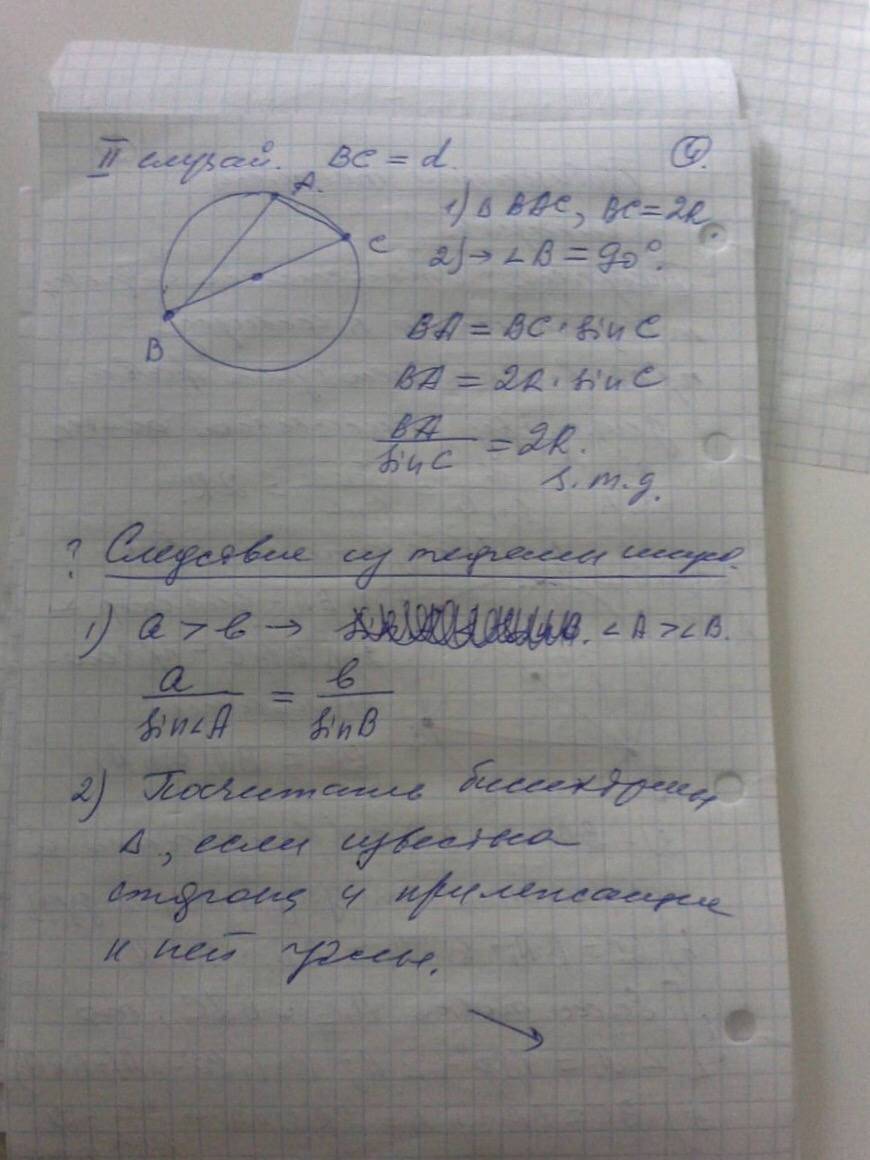 II случай. BC = d. 4.
A.
C
B
1) Δ BAC, BC = 2R.
2) → ∠B = 90°.
BA = BC · sin C
BA = 2R · sin C
BA / sin C = 2R.
ч.т.д.
? Следствие из теоремы синус.
1) a > b → ∠A > ∠B.
a / sin∠A = b / sin B
2) Посчитать биссектрисы
Δ, если известна
сторона и прилежащие
к ней углы.
→